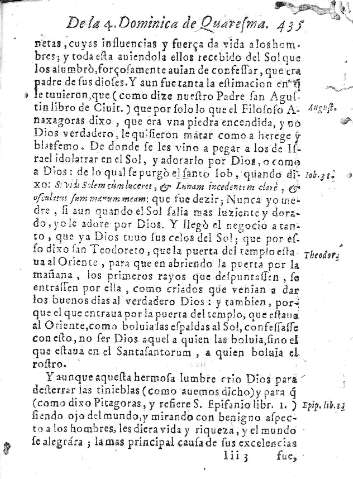 De la 4. Dominica de Quaresma. 435
netas, cuyas influencias y fuerça da vida a los hom-
bres; y toda esta auiendola ellos recebido del Sol que
los alumbrò, forçosamente auian de confessar, que era
padre de sus dioses. Y aun fue tanta la estimacion en q̃
le tuuieron, que (como dize nuestro Padre san Agus-
tin libro de Ciuit.) que por solo lo que el Filosofo A-
naxagoras dixo, que era vna piedra encendida, y no
Dios verdadero, le quisieron matar como a herege y
blasfemo. De donde se les vino a pegar a los de Is-
rael idolatrar en el Sol, y adorarlo por Dios, o como
a Dios: de lo qual se purgò el santo Iob, quando di-
xo: Si vidi Solem cùm luceret, & Lunam incedentem clarè, &
osculatus sum manum meam: que fue dezir; Nunca yo me-
dre, si aun quando el Sol salia mas luziente y dora-
do, yo le adore por Dios. Y llegò el negocio a tan-
to, que ya Dios tuuo sus celos del Sol; que por es-
so dixo san Teodoreto, que la puerta del templo esta-
ua al Oriente, para que en abriendo la puerta por la
mañana, los primeros rayos que despuntassen, se
entrassen por ella, como criados que venian a dar
los buenos dias al verdadero Dios: y tambien, por-
que el que entraua por la puerta del templo, que estaua
al Oriente, como boluia las espaldas al Sol, confessasse
con esto, no ser Dios aquel a quien las boluia, sino el
que estaua en el Santasantorum, a quien boluia el
rostro.
Y aunque aquesta hermosa lumbre crio Dios para
desterrar las tinieblas (como auemos dicho) y para q̃
(como dixo Pitagoras, y refiere S. Epifanio libr. 1.)
siendo ojo del mundo, y mirando con benigno aspec-
to a los hombres, les diera vida y riqueza, y el mundo
se alegràra; la mas principal causa de sus excelencias
Iii 3 fue,
August.
Iob. 31.
Theodor.
Epip. lib.